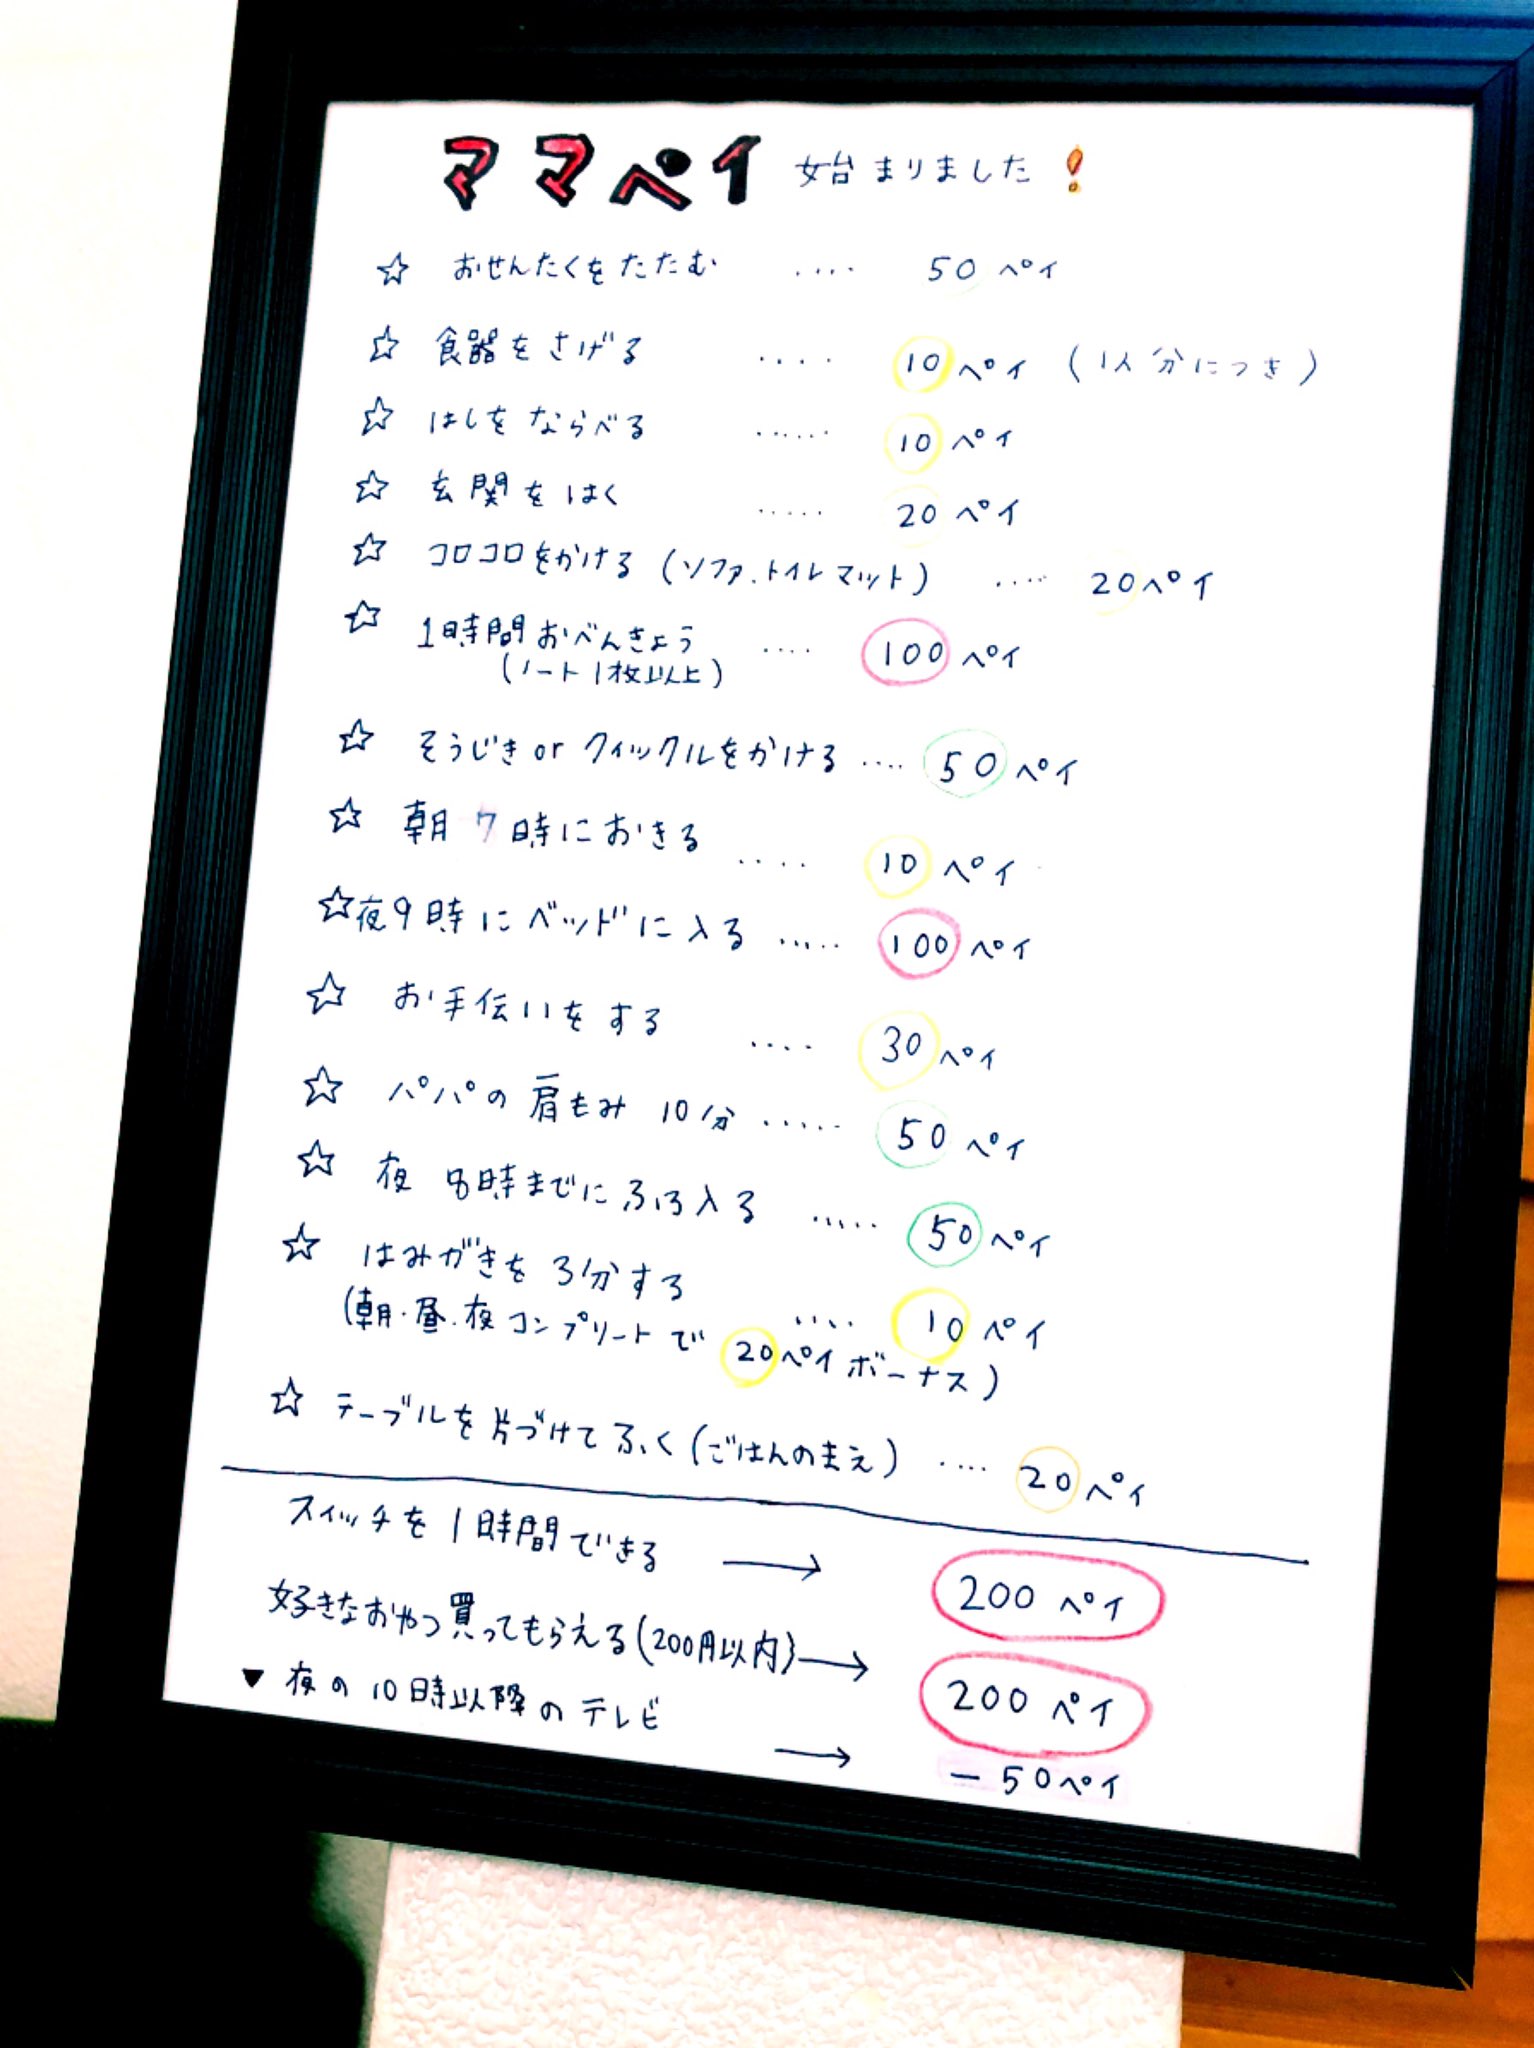 ママペイ 始まりました!
☆ おせんたくをたたむ ‥‥ 50 ペイ
☆ 食器をさげる ‥‥ 10 ペイ (1人分につき)
☆ はしをならべる ‥‥‥ 10 ペイ
☆ 玄関をはく ‥‥‥ 20 ペイ
☆ コロコロをかける (ソファ.トイレマット) ‥‥ 20ペイ
☆ 1時間おべんきょう ‥‥ 100 ペイ
(ノート1枚以上)
☆ そうじき or クイックルをかける ‥‥ 50 ペイ
☆ 朝 7時におきる ‥‥ 10 ペイ
☆ 夜9時にベッドに入る ‥‥‥ 100 ペイ
☆ お手伝いをする ‥‥ 30 ペイ
☆ パパの肩もみ 10分 ‥‥‥ 50 ペイ
☆ 夜 8時までにふろ入る ‥‥‥ 50 ペイ
☆ はみがきを 3分する ‥‥ 10 ペイ
(朝・昼.夜コンプリートで 20ペイ ボーナス)
☆ テーブルを片づけてふく (ごはんのまえ) ‥‥ 20 ペイ
スイッチを1時間できる → 200 ペイ
好きなおやつ買ってもらえる(200円以内) → 200 ペイ
▼ 夜の10時以降のテレビ → − 50ペイ